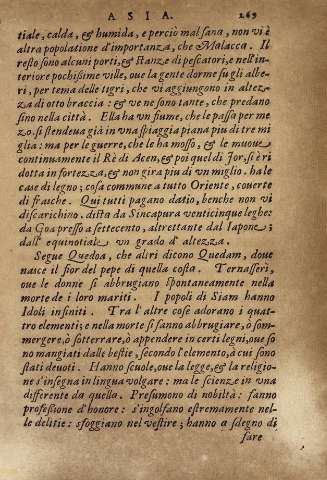 ASIA. 269
tiale, calda, & humida, e perciò mal sana, non vi è
altra popolatione d'importanza, che Malacca. Il
resto sono alcuni porti, & stanze di pescatori, e nell'in-
teriore pochissime ville, oue la gente dorme sù gli albe-
ri, per tema delli tigri, che vi aggiungono in altez-
za di otto braccia: & ve ne sono tante, che predano
sino nella città. Ella ha vn fiume, che le passa per me
zo. si stendeua già in vna spiaggia piana piu di tre mi
glia: ma per le guerre, che le ha mosso, & le muoue
continuamente il Rè di Acen, & poi quel di Ior, si è ri
dotta in fortezza, & non gira piu di vn miglio. ha le
case di legno; cosa commune a tutto Oriente, couerte
di frasche. Qui tutti pagano datio, benche non vi
discarichino. dista da Sincapura venticinque leghe:
da Goa presso a settecento, altrettante dal Iapone;
dall' equinotiale vn grado d' altezza.
Segue Quedoa, che altri dicono Quedam, doue
nasce il fior del pepe di quella costa. Ternasseri,
oue le donne si abbrugiano spontaneamente nella
morte de i loro mariti. I popoli di Siam hanno
Idoli infiniti. Tra l' altre cose adorano i quat-
tro elementi; e nella morte si fanno abbrugiare, ò som-
mergere, ò sotterrare, ò appendere in certi legni, oue so
no mangiati dalle bestie, secondo l'elemento, à cui sono
stati deuoti. Hanno scuole, oue la legge, & la religio-
ne s'insegna in lingua volgare: ma le scienze in vna
differente da quella. Presumono di nobiltà: fanno
professione d'honore: s'ingolfano estremamente nel-
le delitie: sfoggiano nel vestire; hanno a sdegno di
fare